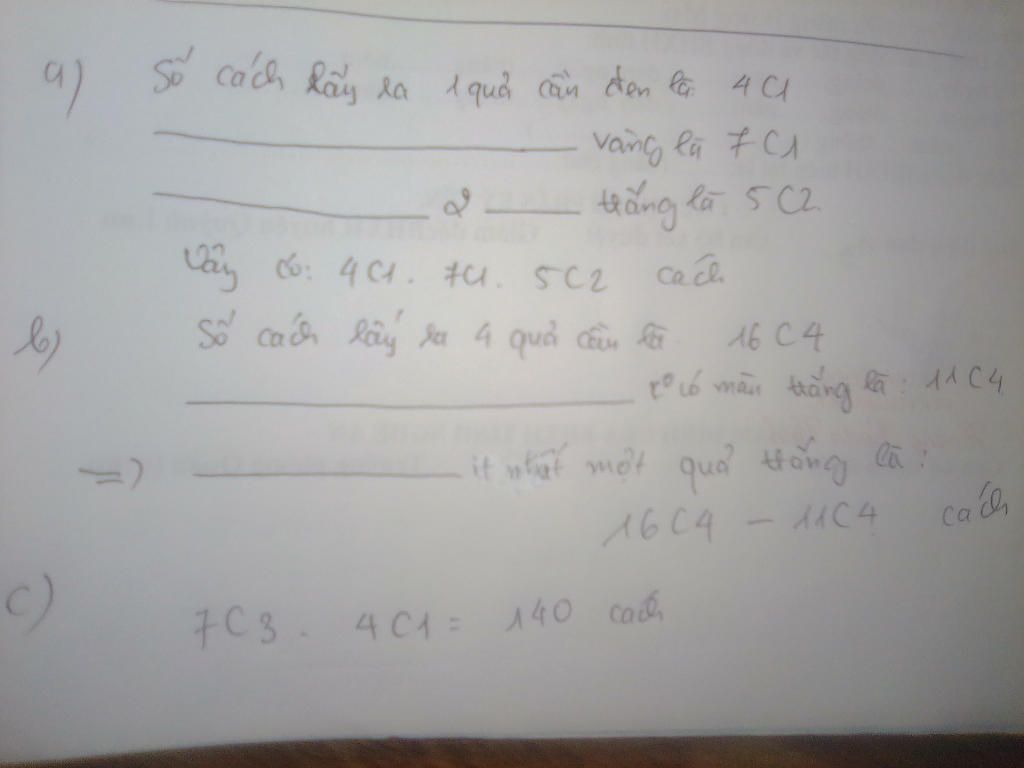 a) Số cách lấy ra 1 quả cần đen là 4C1
vàng là 7C1
2 trắng là 5C2
Vậy có: 4C1. 7C1. 5C2 cách
b) Số cách lấy ra 4 quả cần là 16C4
có màu trắng là: 11C4
=) ít nhất một quả trắng là:
16C4 - 11C4 cách
c) 7C3. 4C1 = 140 cách